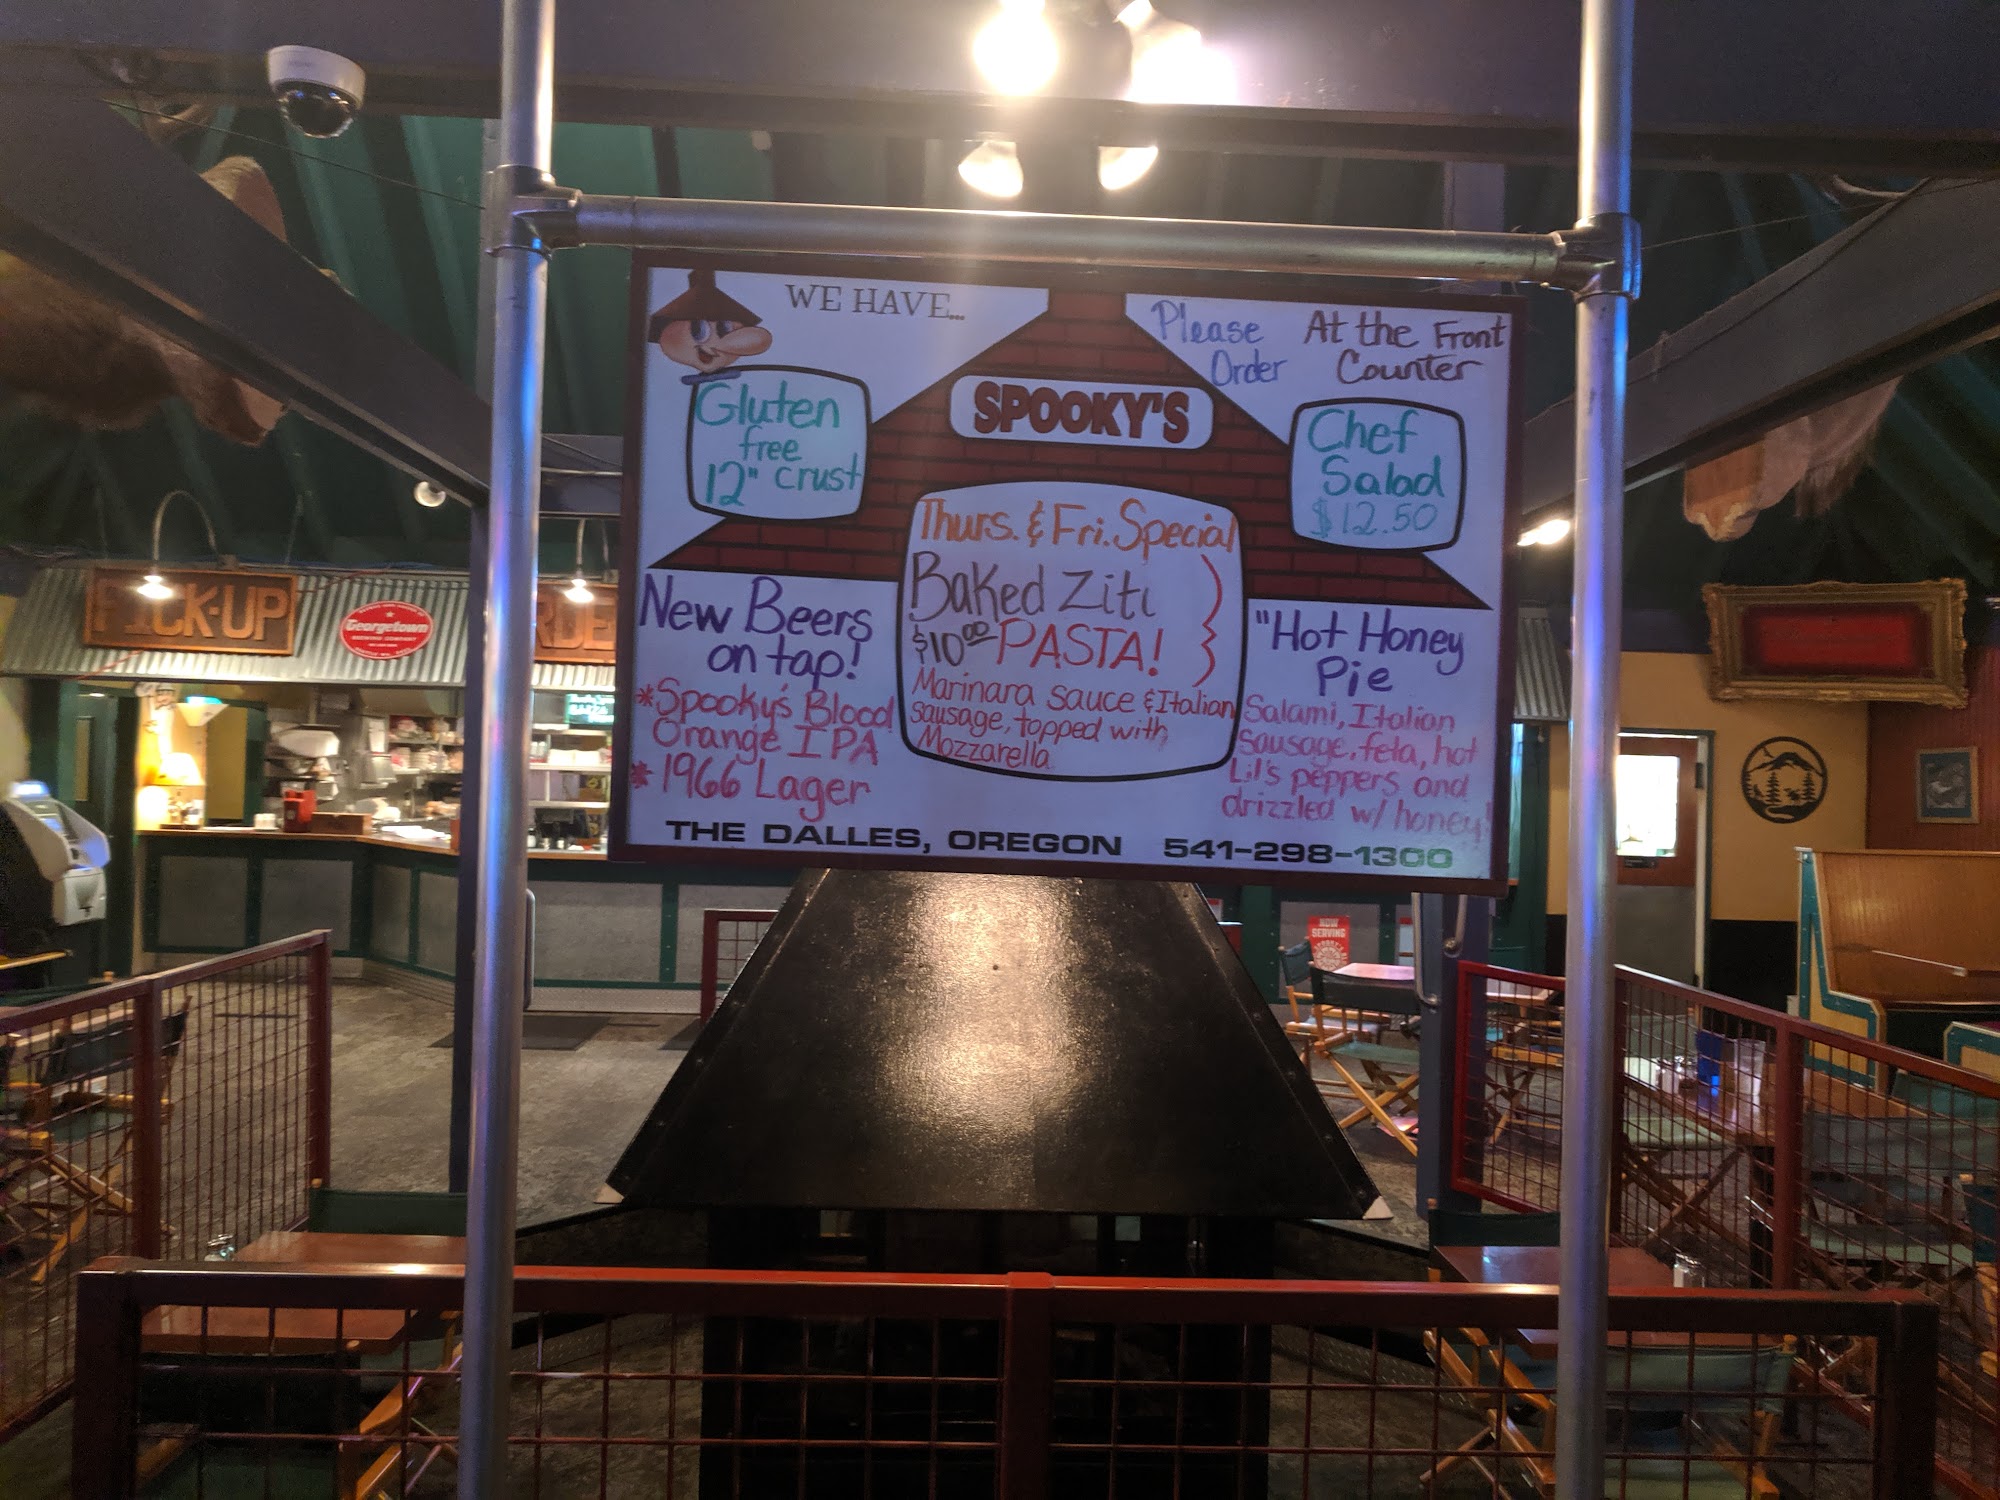 WE HAVE...
Please Order
At the Front Counter
SPOOKY'S
Gluten
free
12" crust
Chef
Salad
$12.50
Thurs. & Fri. Special
Baked Ziti
$10.00 PASTA!
Marinara sauce & Italian
sausage, topped with
Mozzarella
New Beers
on tap!
*Spooky's Blood
Orange IPA
* 1966 Lager
"Hot Honey
Pie
Salami, Italian
sausage, feta, hot
Lil's peppers and
drizzled w/ honey!
THE DALLES, OREGON 541-298-1300
PICK-UP
Georgetown
BREWING COMPANY
NOW
SERVING